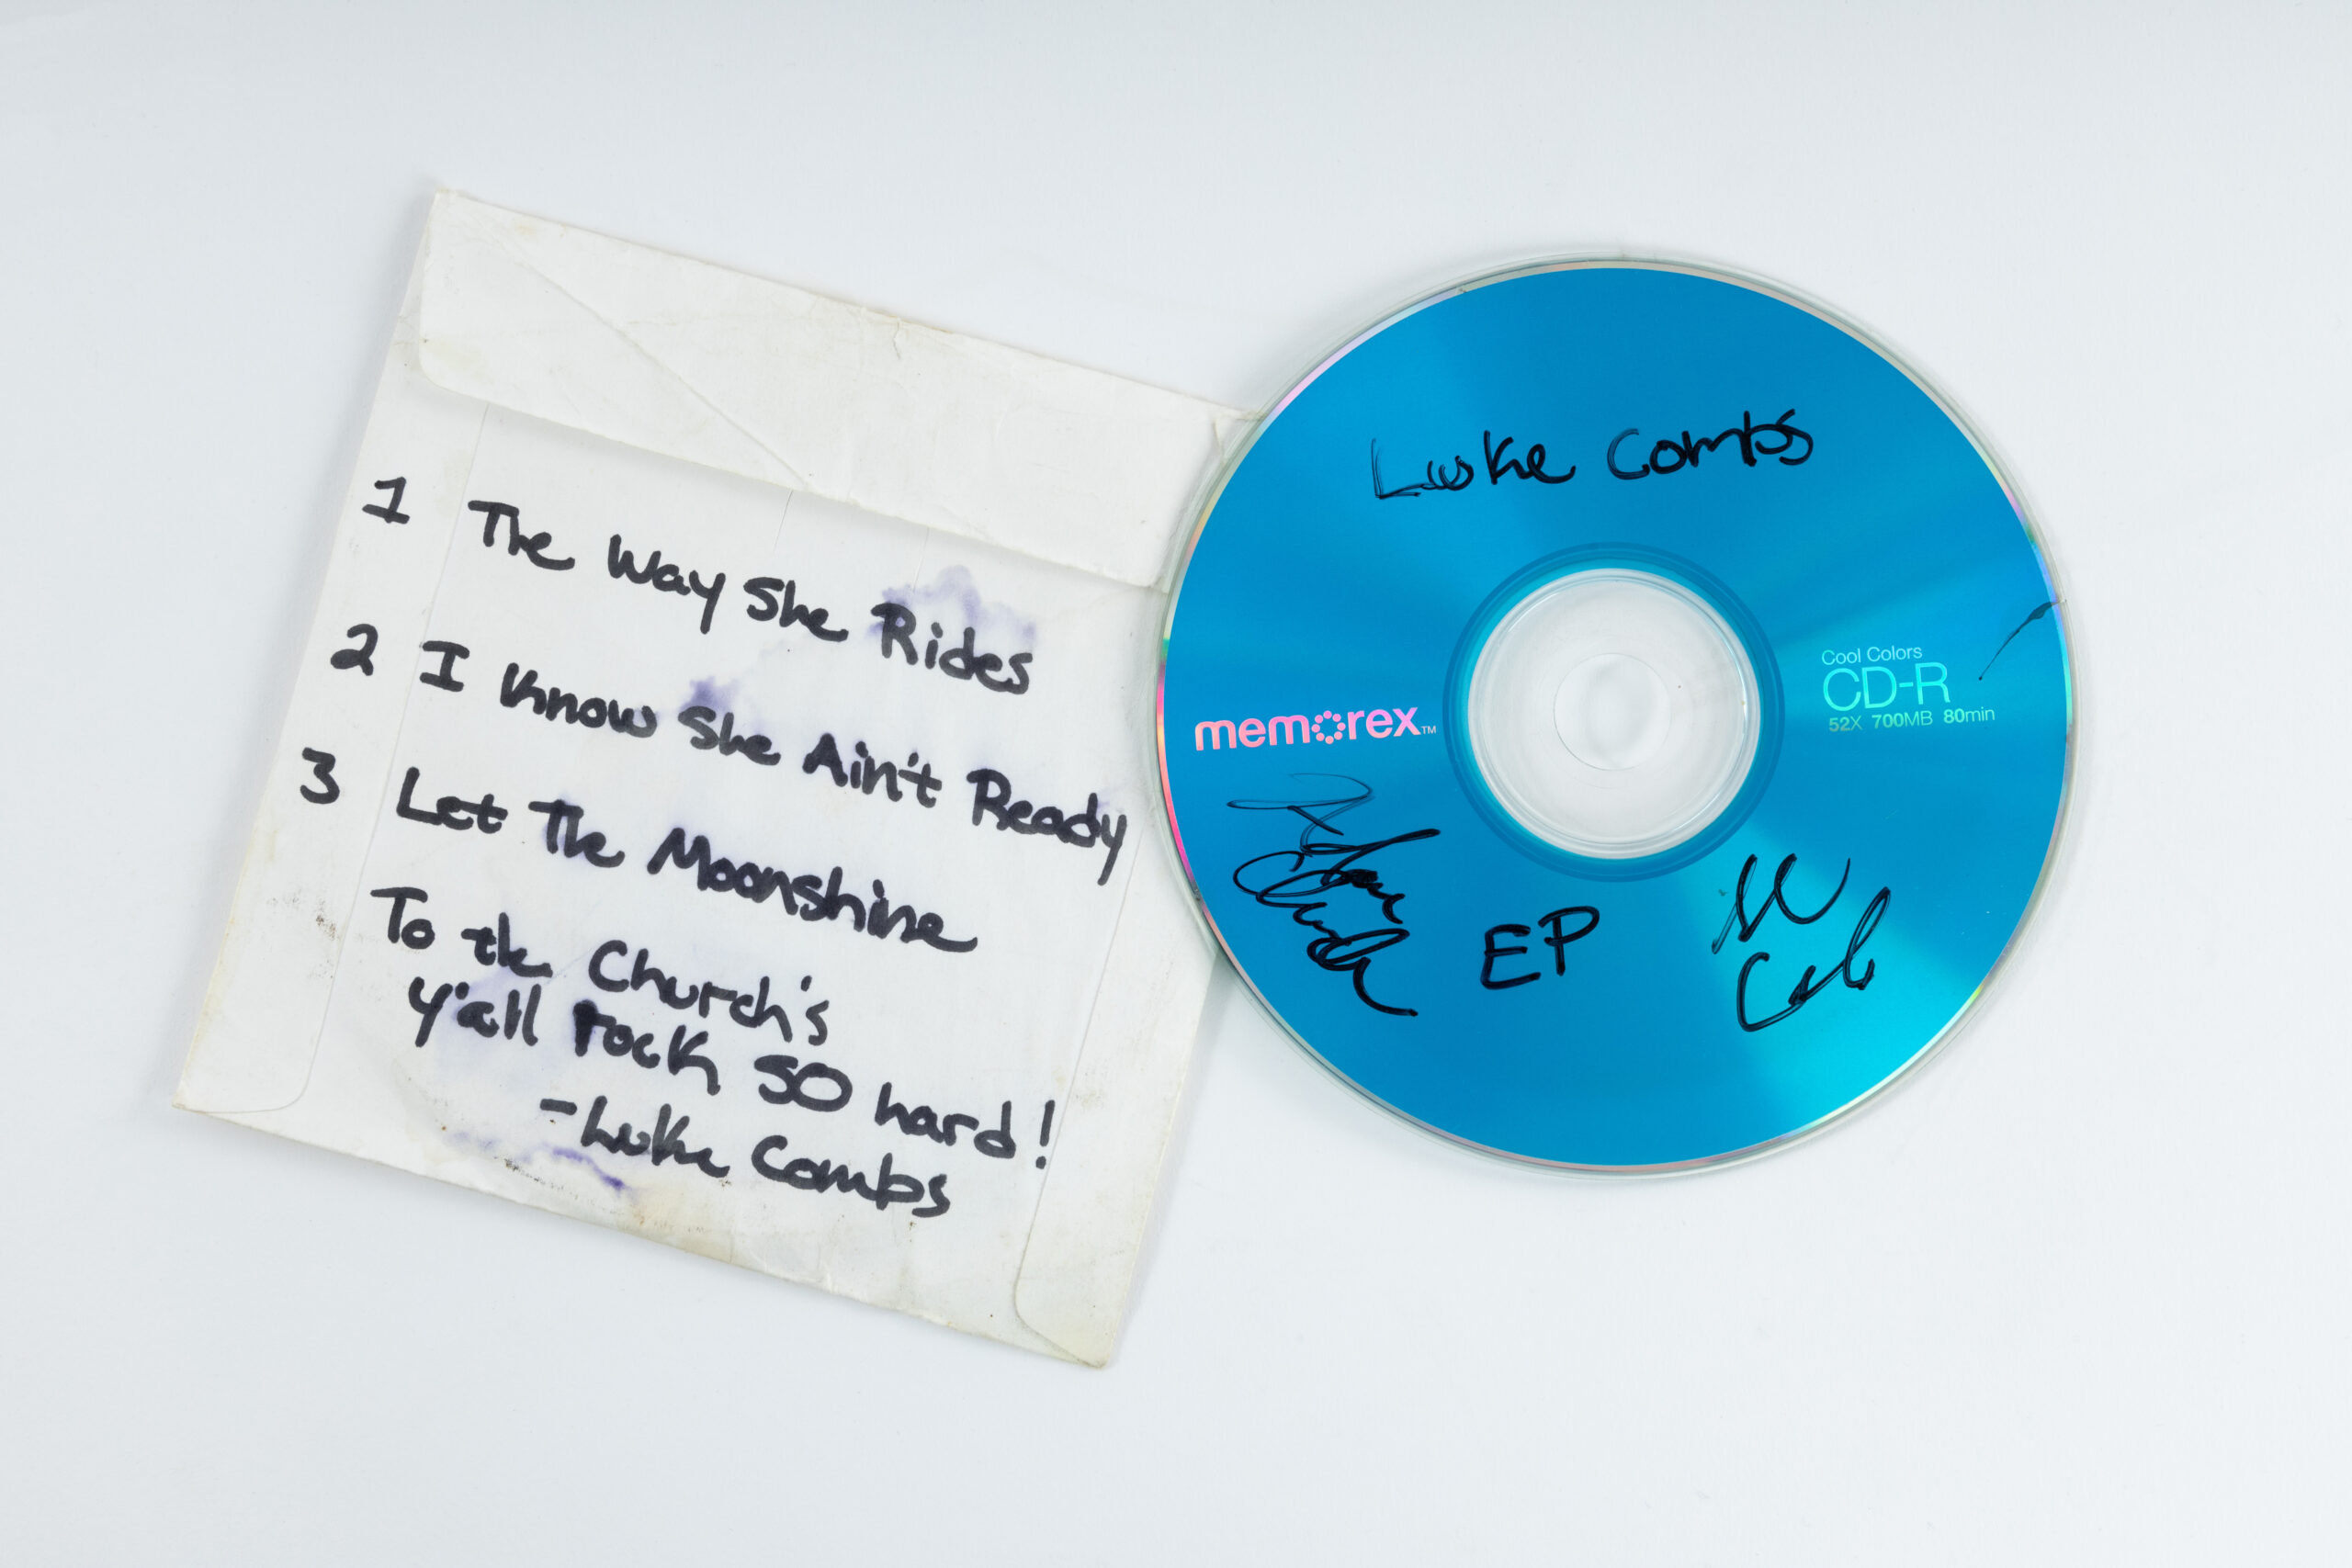 1 The Way She Rides
2 I Know She Ain't Ready
3 Let The Moonshine
To the Church's
y'all rock so hard!
-Luke Combs
Luke Combs
memorex™
Cool Colors
CD-R
52X 700MB 80min
EP